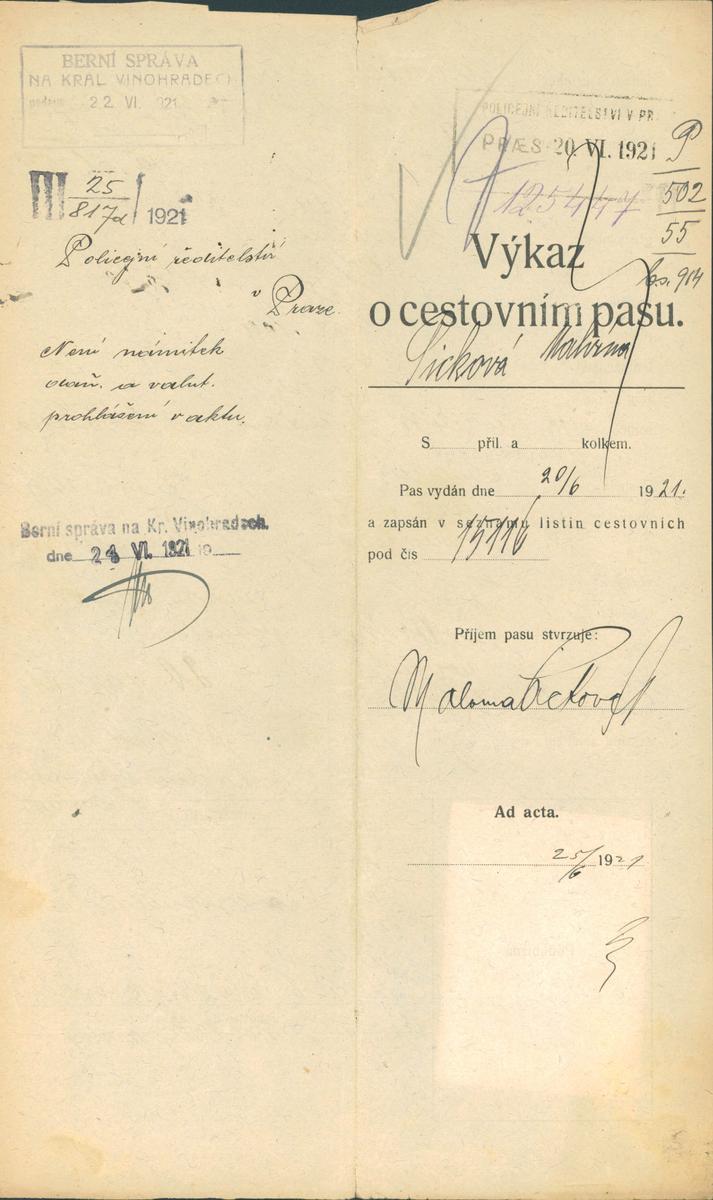 BERNÍ SPRÁVA
NA KRÁL. VINOHRADECH
22. VI. 1921
III 25/817a/1921
Policejní ředitelství
v Praze.
Není námitek
ocaň. a valut.
prohlášení v aktu.
Berní správa na Kr. Vinohradech.
dne 24 VI. 1921 19
POLICEJNÍ ŘEDITELSTVÍ V PR
PRÆS 20. VI. 1921
125447
P
502
55
Výkaz
o cestovním pasu.
Sicková Malvína
S příl. a kolkem.
Pas vydán dne 20/6 1921.
a zapsán v seznamu listin cestovních
pod čís 15116
Příjem pasu stvrzuje:
Ad acta.
25/6 1921